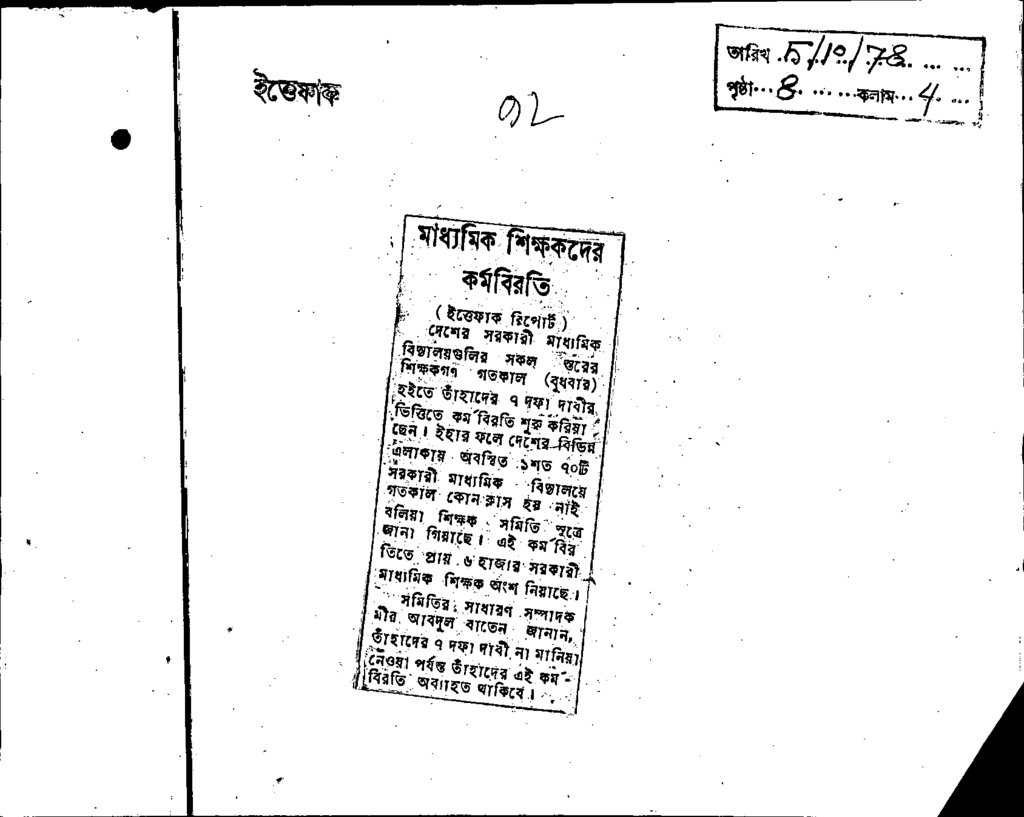 ইত্তেফাক
৩২
তারিখ 5/10/78
পৃষ্ঠা 8 কলাম 4
মাধ্যমিক শিক্ষকদের
কর্মবিরতি
( ইত্তেফাক রিপোর্ট )
দেশের সরকারী মাধ্যমিক
বিদ্যালয়গুলির সকল স্তরের
শিক্ষকগণ গতকাল (বুধবার)
হইতে তাঁহাদের ৭ দফা দাবীর
ভিত্তিতে কর্মবিরতি শুরু করিয়া
ছেন। ইহার ফলে দেশের বিভিন্ন
এলাকায় অবস্থিত ১শত ৭০টি
সরকারী মাধ্যমিক বিদ্যালয়ে
গতকাল কোন ক্লাস হয় নাই
বলিয়া শিক্ষক সমিতি সূত্রে
জানা গিয়াছে। এই কর্মবির
তিতে প্রায় ৬ হাজার সরকারী
মাধ্যমিক শিক্ষক অংশ নিয়াছে।
সমিতির সাধারণ সম্পাদক
মীর আবদুল বাতেন জানান,
তাঁহাদের ৭ দফা দাবী না মানিয়া
নেওয়া পর্যন্ত তাঁহাদের এই কর্ম-
বিরতি অব্যাহত থাকিবে।